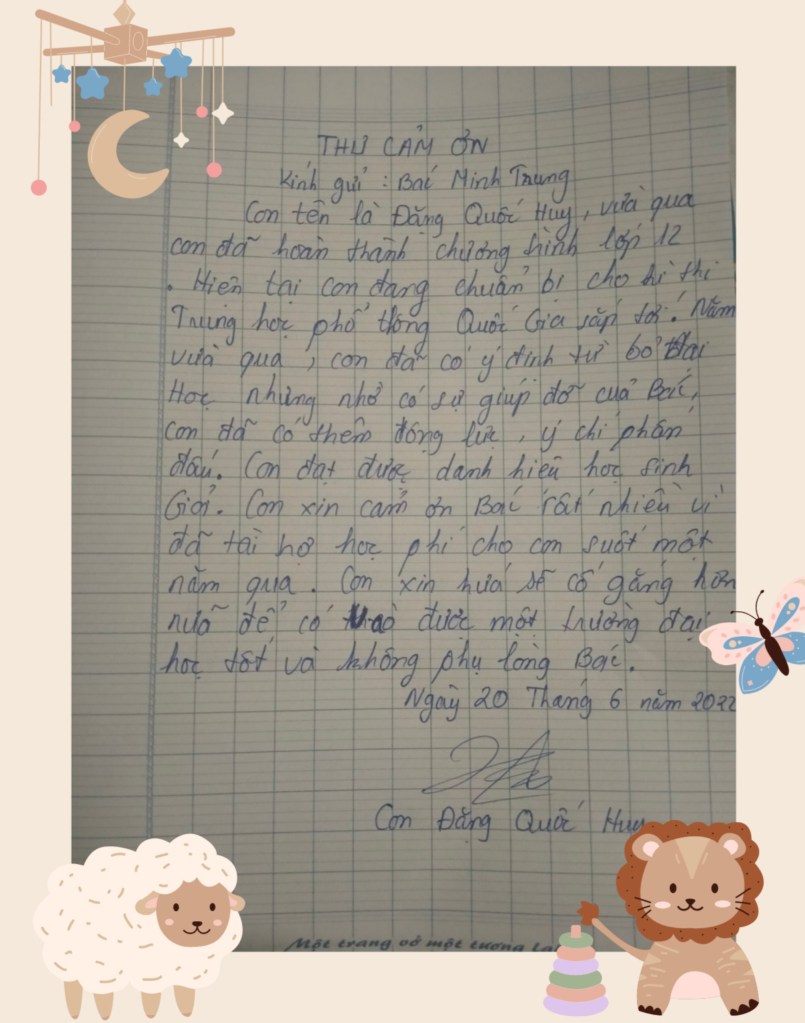 THƯ CẢM ƠN
Kính gửi : Bác Minh Trung
Con tên là Đặng Quốc Huy, vừa qua
con đã hoàn thành chương trình lớp 12
. Hiện tại con đang chuẩn bị cho kì thi
Trung học phổ thông Quốc Gia sắp tới. Năm
vừa qua, con đã có ý định từ bỏ Đại
Học nhưng nhờ có sự giúp đỡ của Bác,
con đã có thêm động lực, ý chí phấn
đấu. Con đạt được danh hiệu học sinh
Giỏi. Con xin cảm ơn Bác rất nhiều vì
đã tài hợ học phí cho con suốt một
năm qua. Con xin hứa sẽ cố gắng hơn
nữa để có vào được một trường đại
học tốt và không phụ lòng Bác.
Ngày 20 Tháng 6 năm 2022
Con Đặng Quốc Huy
Một trang vở một tương lai